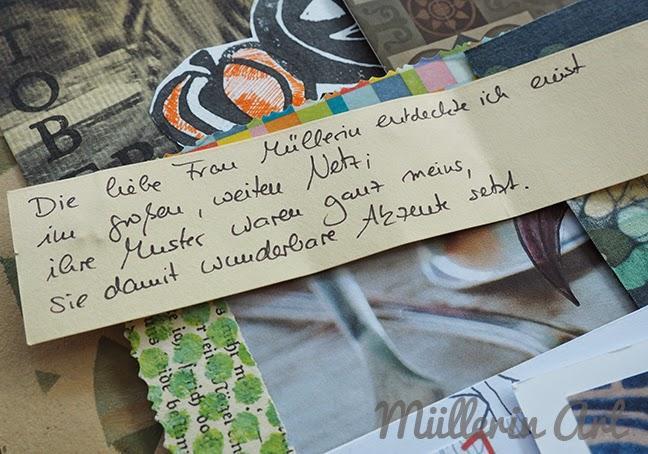 TOBER
Die liebe Frau Müllerin entdeckte ich einst
im großen, weiten Netz;
ihre Muster waren ganz meins,
sie damit wunderbare Akzente setzt.
Müllerin Art